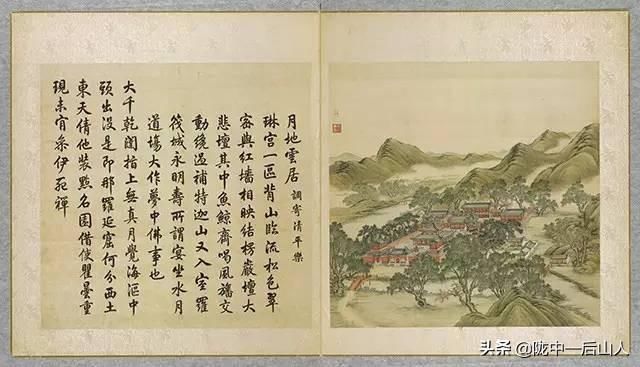 月地雲居 調寄清平樂
琳宮一區背山臨流松色翠
密與紅墻相映結楞嚴壇大
悲壇其中魚鯨齋喝風旛交
動纔過補特迦山又入室羅
筏城永明壽所謂宴坐水月
道場大作夢中佛事也
大千乾闥指上無真月覺海漚中
頭出没是即那羅延窟何分西土
東天倩他裝點名園借使瞿曇重
現未肯參伊死禪
头条 @陇中一后山人